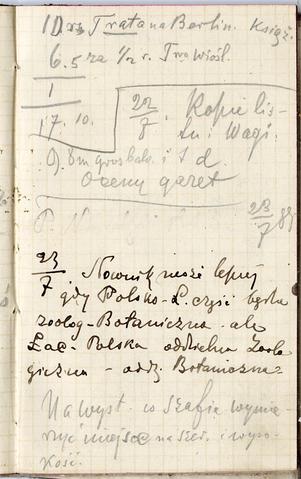 1 Drs Trata na Berlin. Książ.
6.5 za 1/2 r. Tow Wiośl.
1
17. 10. 22/7. Kopie lis-
tu i Wagi.
i t d.
Oceny gazet
23/7 89
23/7 Nownik może lepiej
gdy Polsko-Ł. część będzie
zoolog-Botaniczna. ale
Łac-Polska oddzielna Zoolo
giczna - oddz. Botaniczna=
Na wyst. co szafie wymie-
rzyć miejsce na szer. i wyso-
kość.